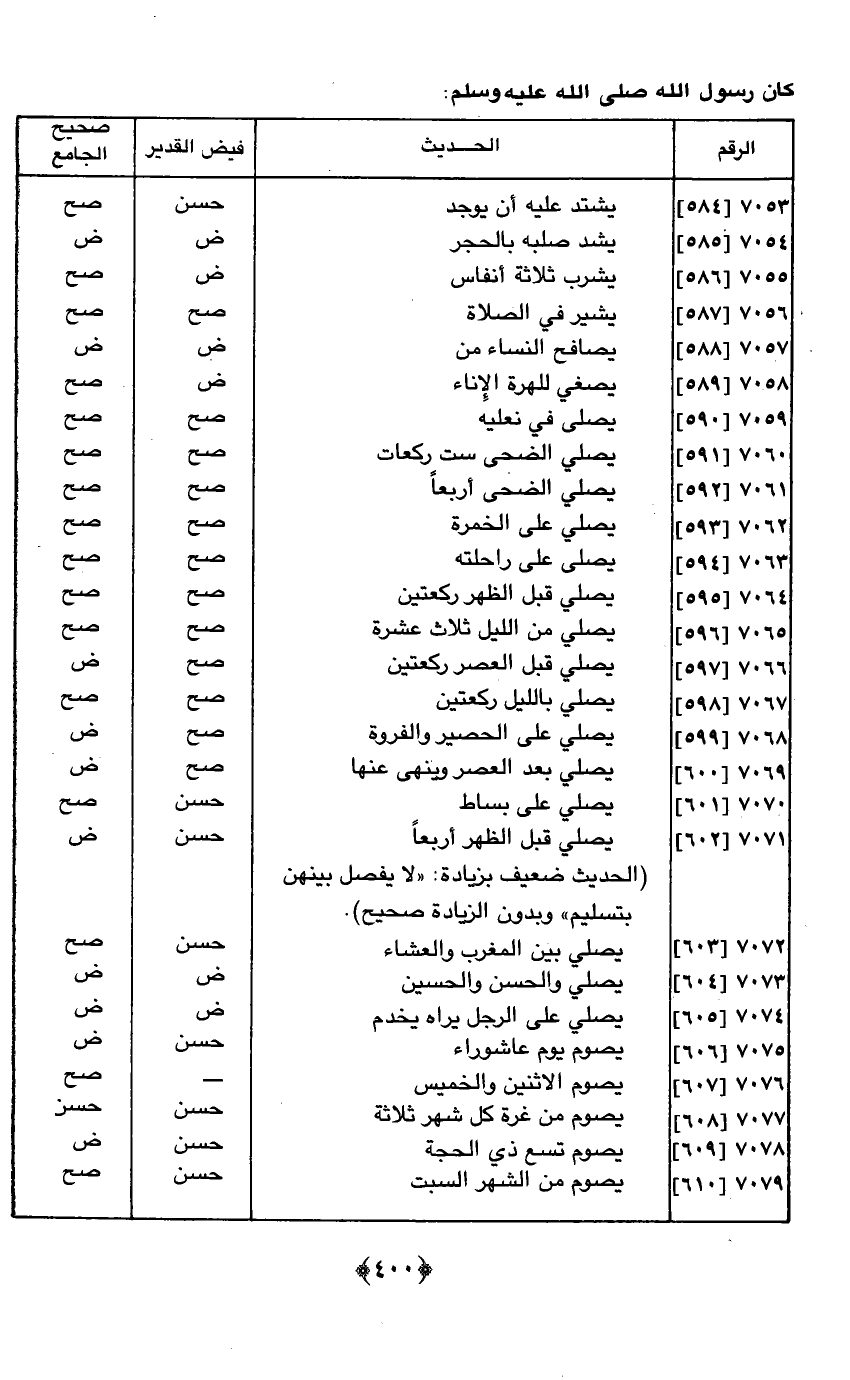 كان رسول الله صلى الله عليه وسلم:
الرقم الحـــديث فيض القدير صحيح الجامع
٧٠٥٣ [٥٨٤] يشتد عليه أن يوجد حسن صح
٧٠٥٤ [٥٨٥] يشد صلبه بالحجر ض ض
٧٠٥٥ [٥٨٦] يشرب ثلاثة أنفاس ض صح
٧٠٥٦ [٥٨٧] يشير في الصلاة صح صح
٧٠٥٧ [٥٨٨] يصافح النساء من ض ض
٧٠٥٨ [٥٨٩] يصغي للهرة الإناء ض صح
٧٠٥٩ [٥٩٠] يصلى في نعليه صح صح
٧٠٦٠ [٥٩١] يصلي الضحى ست ركعات صح صح
٧٠٦١ [٥٩٢] يصلي الضحى أربعاً صح صح
٧٠٦٢ [٥٩٣] يصلي على الخمرة صح صح
٧٠٦٣ [٥٩٤] يصلى على راحلته صح صح
٧٠٦٤ [٥٩٥] يصلي قبل الظهر ركعتين صح صح
٧٠٦٥ [٥٩٦] يصلي من الليل ثلاث عشرة صح صح
٧٠٦٦ [٥٩٧] يصلي قبل العصر ركعتين صح ض
٧٠٦٧ [٥٩٨] يصلي بالليل ركعتين صح صح
٧٠٦٨ [٥٩٩] يصلي على الحصير والفروة صح ض
٧٠٦٩ [٦٠٠] يصلي بعد العصر وينهى عنها صح ض
٧٠٧٠ [٦٠١] يصلي على بساط حسن صح
٧٠٧١ [٦٠٢] يصلي قبل الظهر أربعاً حسن ض
(الحديث ضعيف بزيادة: «لا يفصل بينهن
بتسليم» وبدون الزيادة صحيح).
٧٠٧٢ [٦٠٣] يصلي بين المغرب والعشاء حسن صح
٧٠٧٣ [٦٠٤] يصلي والحسن والحسين ض ض
٧٠٧٤ [٦٠٥] يصلي على الرجل يراه يخدم ض ض
٧٠٧٥ [٦٠٦] يصوم يوم عاشوراء حسن ض
٧٠٧٦ [٦٠٧] يصوم الاثنين والخميس — صح
٧٠٧٧ [٦٠٨] يصوم من غرة كل شهر ثلاثة حسن حسن
٧٠٧٨ [٦٠٩] يصوم تسع ذي الحجة حسن ض
٧٠٧٩ [٦١٠] يصوم من الشهر السبت حسن صح
﴿٤٠٠﴾